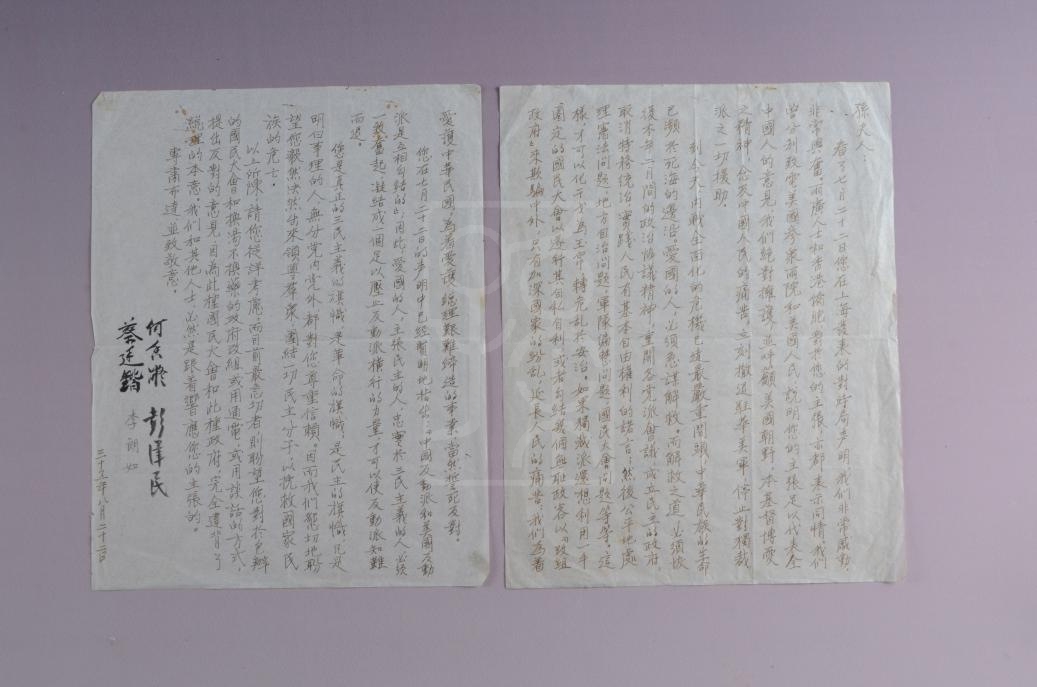 孫夫人：
看了七月二十二日您在上海發表的對時局聲明，我們非常感動，
非常興奮。兩廣人士和香港僑胞對於您的主張，亦都表示同情。我們
曾分別致電美國參衆兩院和美國人民，說明您的主張足以代表全
中國人的意見，我們絕對擁護，並呼籲美國朝野，本基督博愛
之精神，念及中國人民的痛苦，立刻撤退駐華美軍，停止對獨裁
派之一切援助。
到今天，內戰全面化的危機已達最嚴重關頭，中華民族的生命
已瀕於死海的邊沿。愛國的人，必須急謀解救，而解救之道，必須恢
復本年二月間的政治協議精神，重開各党派會議，成立民主的政府，
取消特務統治，實踐人民有基本自由權利的諾言，然後公平地處
理憲法問題，地方自治問題，軍隊編整問題，國民大會問題等等。這
樣，才可以化干戈為玉帛，轉危亂於安治。如果獨裁派還想利用一手
圈定的國民大會以遂行其自私自利，或者勾結幾個無恥政客以「改組
政府」來欺騙中外，只有加深國家的紛亂，延長人民的痛苦，我們為着
愛護中華民國，為着愛護總理艱難締造的事業，當然誓死反對。
您在七月二十二日的聲明中已經賢明地指出：「中國反動派和美國反動
派是互相勾結的」，因此，愛國的人，主張民主的人，忠實於三民主義的人必須
一致奮起，凝結成一個足以壓止反動派橫行的力量，才可以使反動派知難
而退。
您是真正的三民主義的旗幟，是革命的旗幟，是民主的旗幟，凡是
明白事理的人，無分党內党外，都對您尊重信賴。因而我們懇切地盼
望您毅然決然，出來領導群衆，團結一切民主分子，以挽救國家民
族的危亡。
以上所陳，請您從詳考慮，而目前最急切者，則盼望您對於包辦
的國民大會和換湯不換藥的政府改組，或用通電，或用談話的方式，
提出反對的意見，因為此種國民大會和此種政府，完全違背了
總理的本意。我們和其他人士，必然是跟着響應您的主張的。
專肅布達，並致敬意。
何香凝 彭澤民
蔡廷鍇 李朗如
三十五年八月二十二日